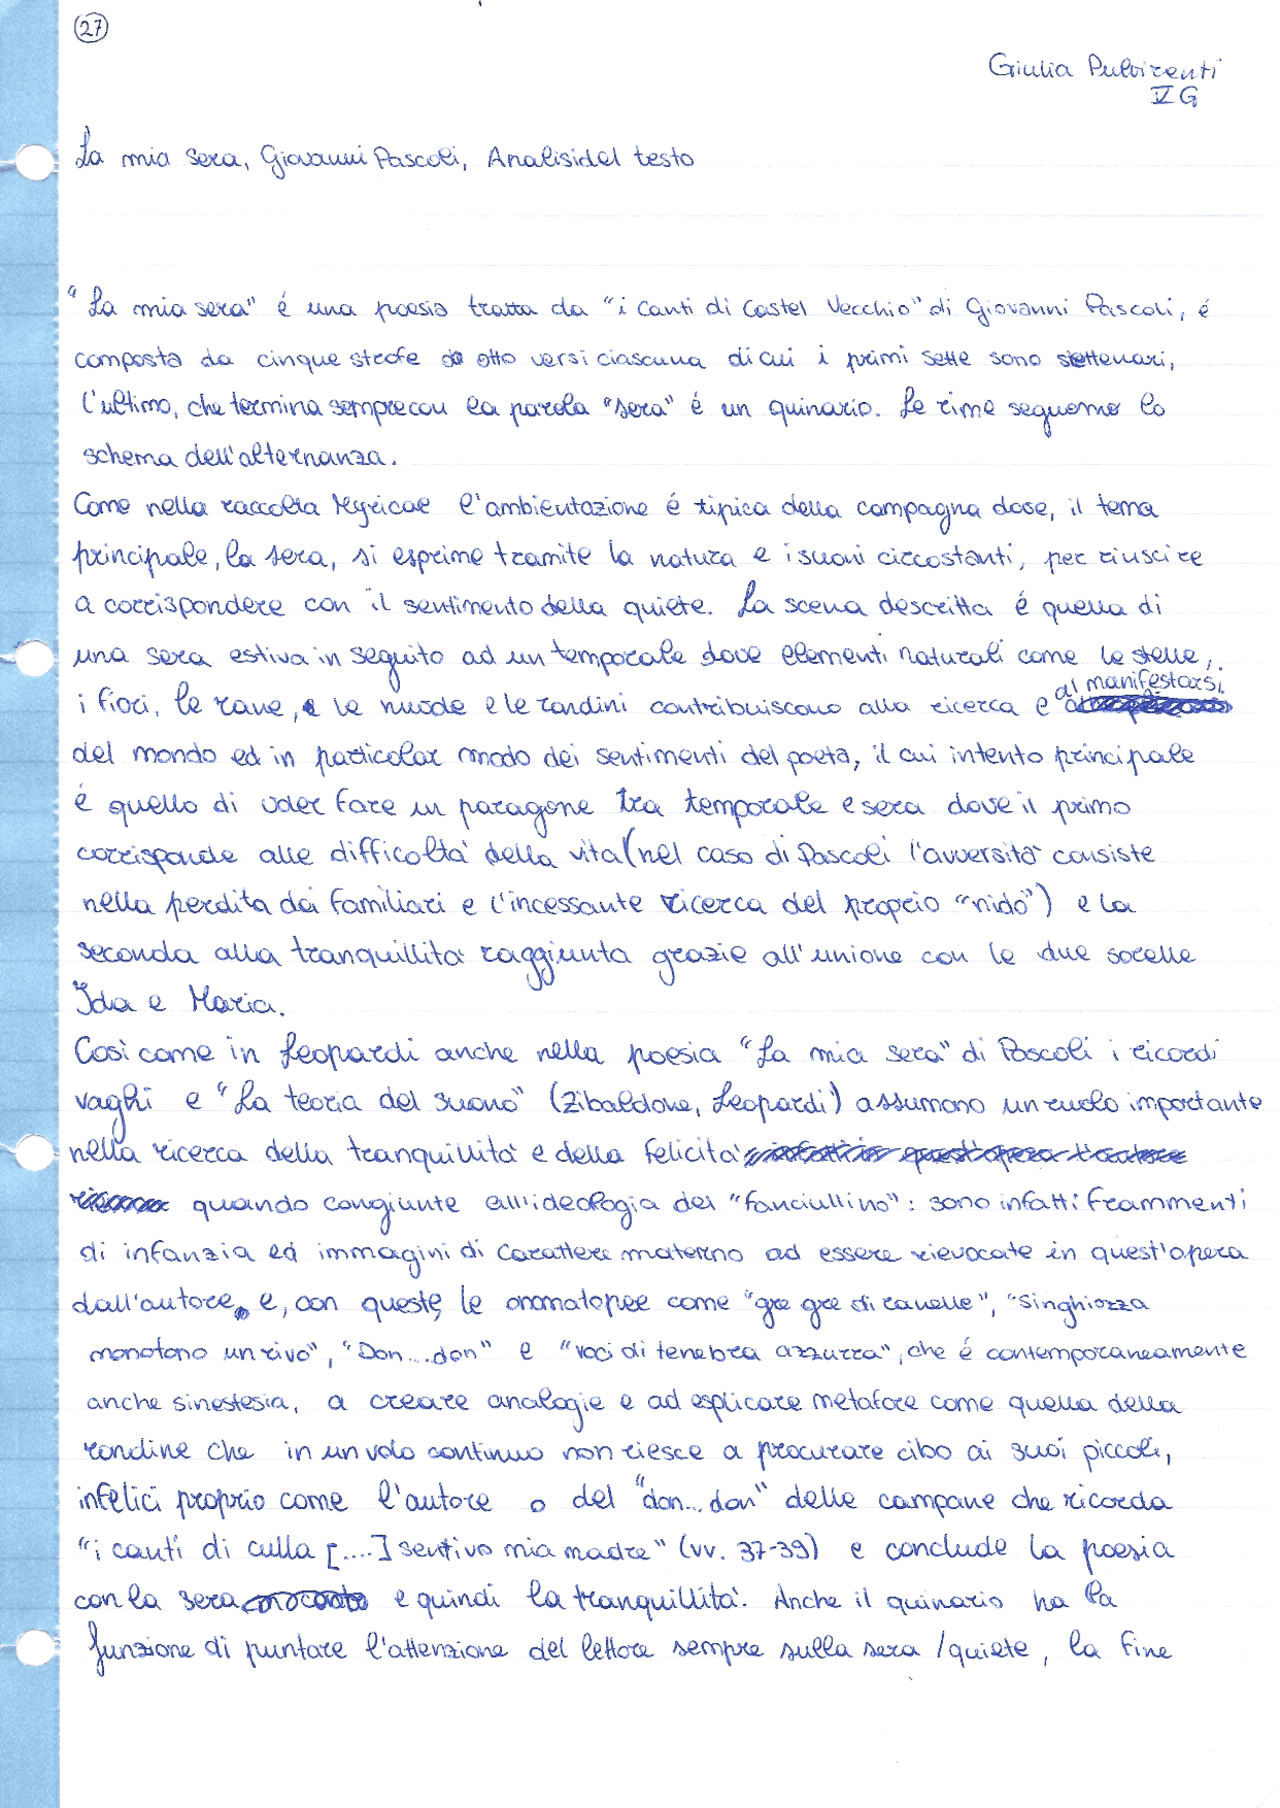 27
Giulia Pulvirenti
V G
La mia sera, Giovanni Pascoli, Analisi del testo
"La mia sera" é una poesia tratta da "i Canti di Castel Vecchio" di Giovanni Pascoli, é
composta da cinque strofe da otto versi ciascuna di cui i primi sette sono settenari,
l'ultimo, che termina sempre con la parola "sera" é un quinario. Le rime seguono lo
schema dell'alternanza.
Come nella raccolta Myricae l'ambientazione é tipica della campagna dove, il tema
principale, la sera, si esprime tramite la natura e i suoni circostanti, per riuscire
a corrispondere con il sentimento della quiete. La scena descritta é quella di
una sera estiva in seguito ad un temporale dove elementi naturali come le stelle,
i fiori, le rane, le nuvole e le rondini contribuiscono alla ricerca e al manifestarsi
del mondo ed in particolar modo dei sentimenti del poeta, il cui intento principale
é quello di voler fare un paragone tra temporale e sera dove il primo
corrisponde alle difficoltà della vita (nel caso di Pascoli l'avversità consiste
nella perdita dei familiari e l'incessante ricerca del proprio "nido") e la
seconda alla tranquillità raggiunta grazie all'unione con le due sorelle
Ida e Maria.
Così come in Leopardi anche nella poesia "La mia sera" di Pascoli i ricordi
vaghi e "La teoria del suono" (Zibaldone, Leopardi) assumono un ruolo importante
nella ricerca della tranquillità e della felicità
quando congiunte all'ideologia del "fanciullino": sono infatti frammenti
di infanzia ed immagini di carattere materno ad essere rievocate in quest'opera
dall'autore e, con queste, le onomatopee come "gre gre di ranelle", "singhiozza
monotono un rivo", "Don...don" e "voci di tenebra azzurra", che é contemporaneamente
anche sinestesia, a creare analogie e ad esplicare metafore come quella della
rondine che in un volo continuo non riesce a procurare cibo ai suoi piccoli,
infelici proprio come l'autore o del "don...don" delle campane che ricorda
"i canti di culla [....] sentivo mia madre" (vv. 37-39) e conclude la poesia
con la sera e quindi la tranquillità. Anche il quinario ha la
funzione di puntare l'attenzione del lettore sempre sulla sera/quiete, la fine